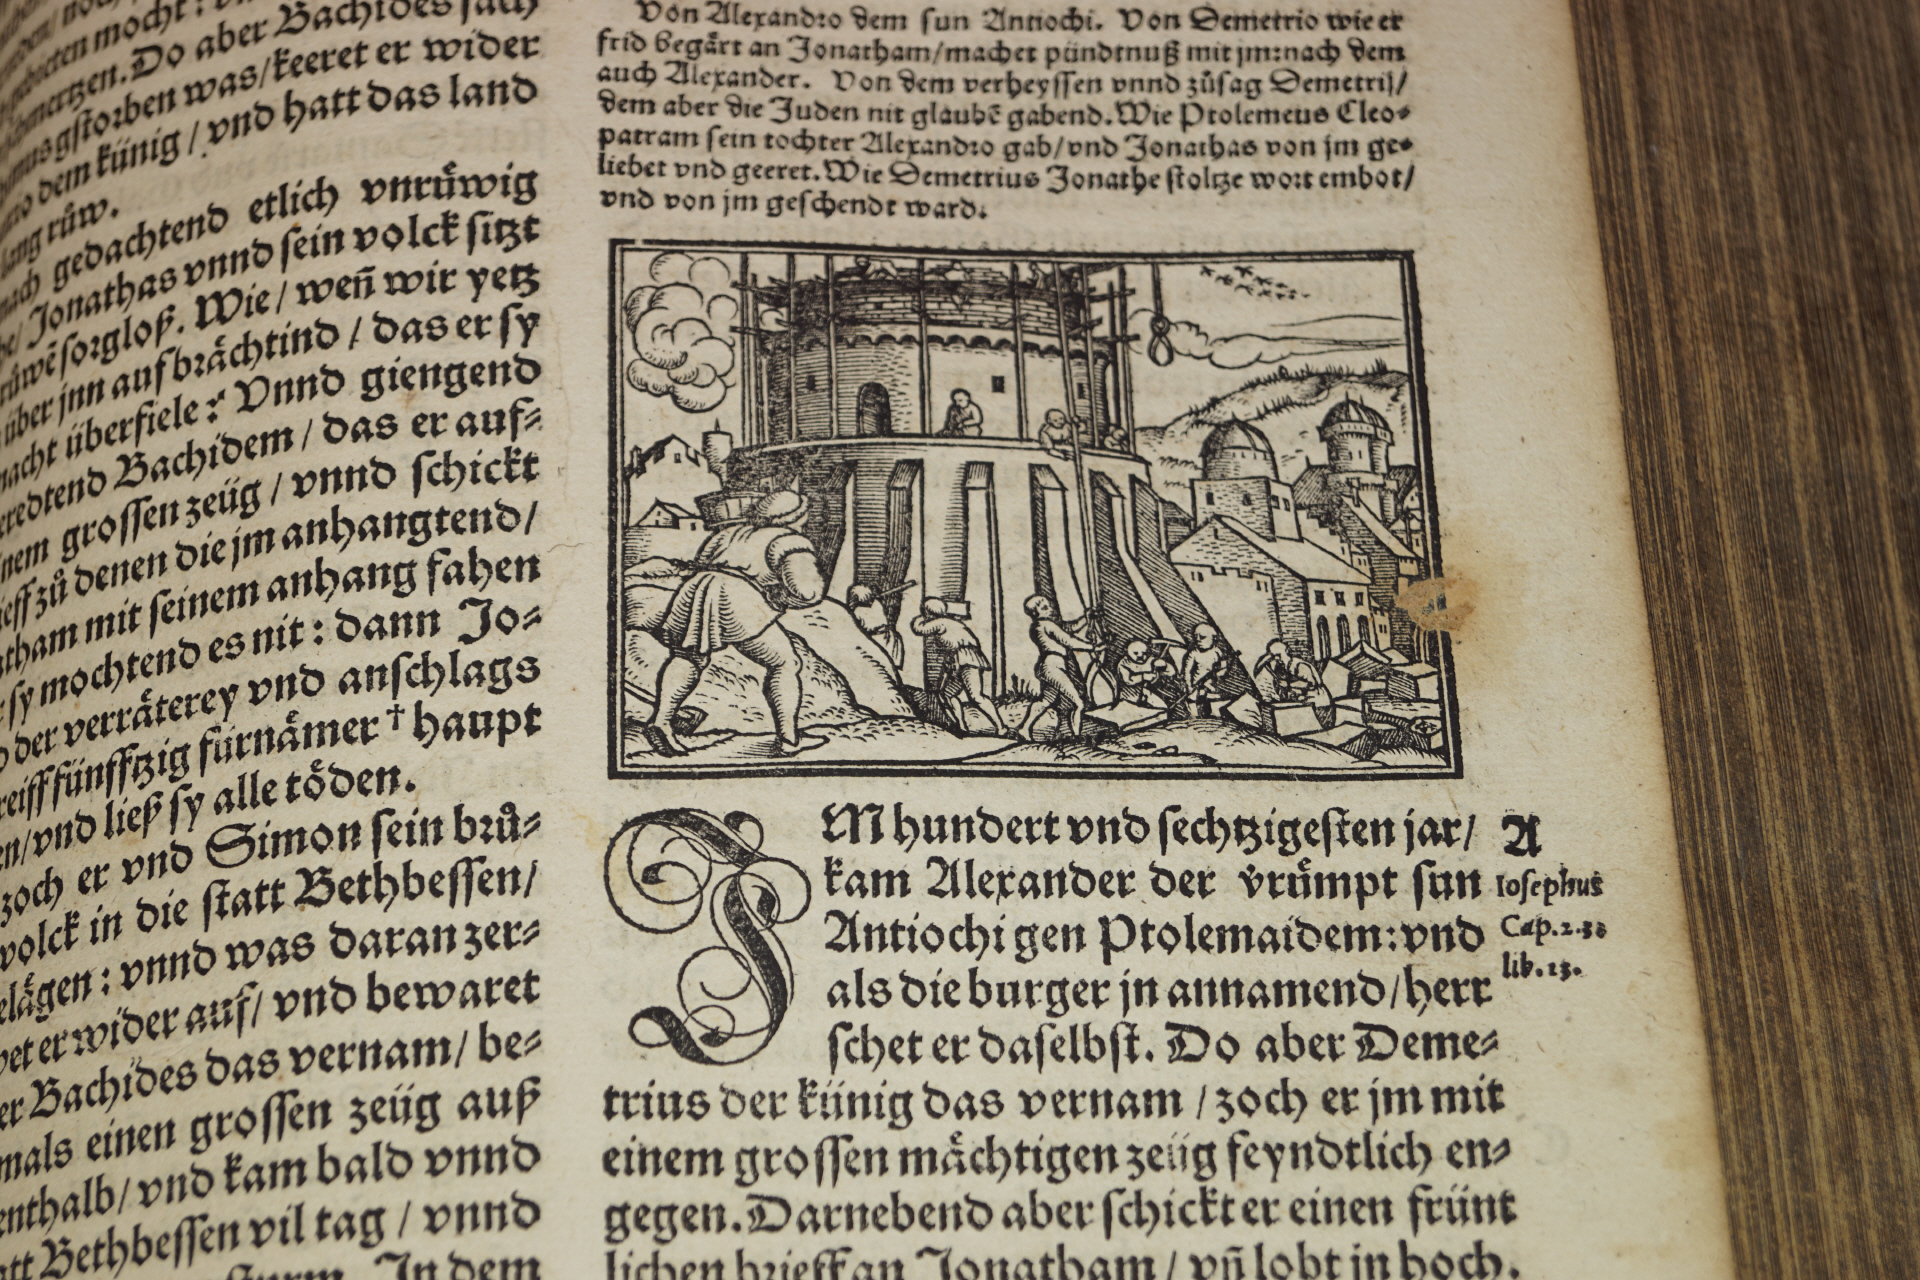 mocht: vn
gebieten
schmertzen. Do aber Bachides sach
gstorben was/keeret er wider
dem künig/vnd hatt das land
lang růw.
gedachtend etlich vnrůwig
Jonathas vnnd sein volck sitzt
sorgloß. Wie/wen̄ wir yetz
über jnn aufbrächtind/das er sy
nacht überfiele: Vnnd giengend
Bachidem/das er auf⸗
grossen zeüg/vnnd schickt
zů denen die jm anhangtend/
mit seinem anhang fahen
sy mochtend es nit: dann Jo⸗
der verräterey vnd anschlags
fünfftzig fürnämer † haupt
vnd ließ sy alle töden.
zoch er vnd Simon sein brů⸗
volck in die statt Bethbessen/
elägen: vnnd was daran zer⸗
er wider auf/vnd bewaret
Bachides das vernam/be⸗
mals einen grossen zeüg auß
enthalb/vnd kam bald vnnd
Bethbessen vil tag/vnnd
In dem
Von Alexandro dem sun Antiochi. Von Demetrio wie er
frid begärt an Jonatham/machet pündtnuß mit jm: nach dem
auch Alexander. Von dem verheyssen vnnd zůsag Demetrij/
dem aber die Juden nit glaubē gabend. Wie Ptolemeus Cleo⸗
patram sein tochter Alexandro gab/vnd Jonathas von jm ge⸗
liebet vnd geeret. Wie Demetrius Jonathe stoltze wort embot/
vnd von jm geschendt ward.
JM hundert vnd sechtzigesten jar/
kam Alexander der vrümpt sun
Antiochi gen Ptolemaidem: vnd
als die burger jn annamend/herr
schet er daselbst. Do aber Deme⸗
trius der künig das vernam/zoch er jm mit
einem grossen mächtigen zeüg feyndtlich en⸗
gegen. Darnebend aber schickt er einen frünt
lichen brieff an Jonatham/vn̄ lobt jn hoch.
A
Iosephus
Cap.2.3.
lib.13.